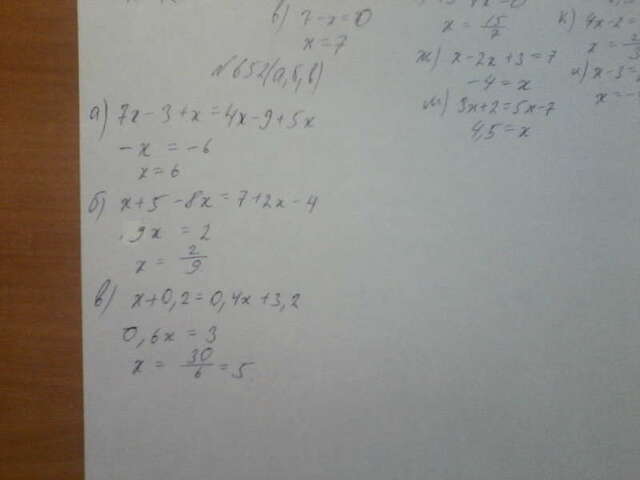 в) 7-x=0
x=7
x = 15/7
ж) x-2x+3=7
-4=x
м) 3x+2=5x-7
4,5=x
к) 4x-2=
x = 2/3
x-3=
x=-
№652(а,б,в)
а) 7x-3+x=4x-9+5x
-x = -6
x=6
б) x+5-8x=7+2x-4
9x = 2
x = 2/9
в) x+0,2=0,4x+3,2
0,6x=3
x = 30/6 = 5